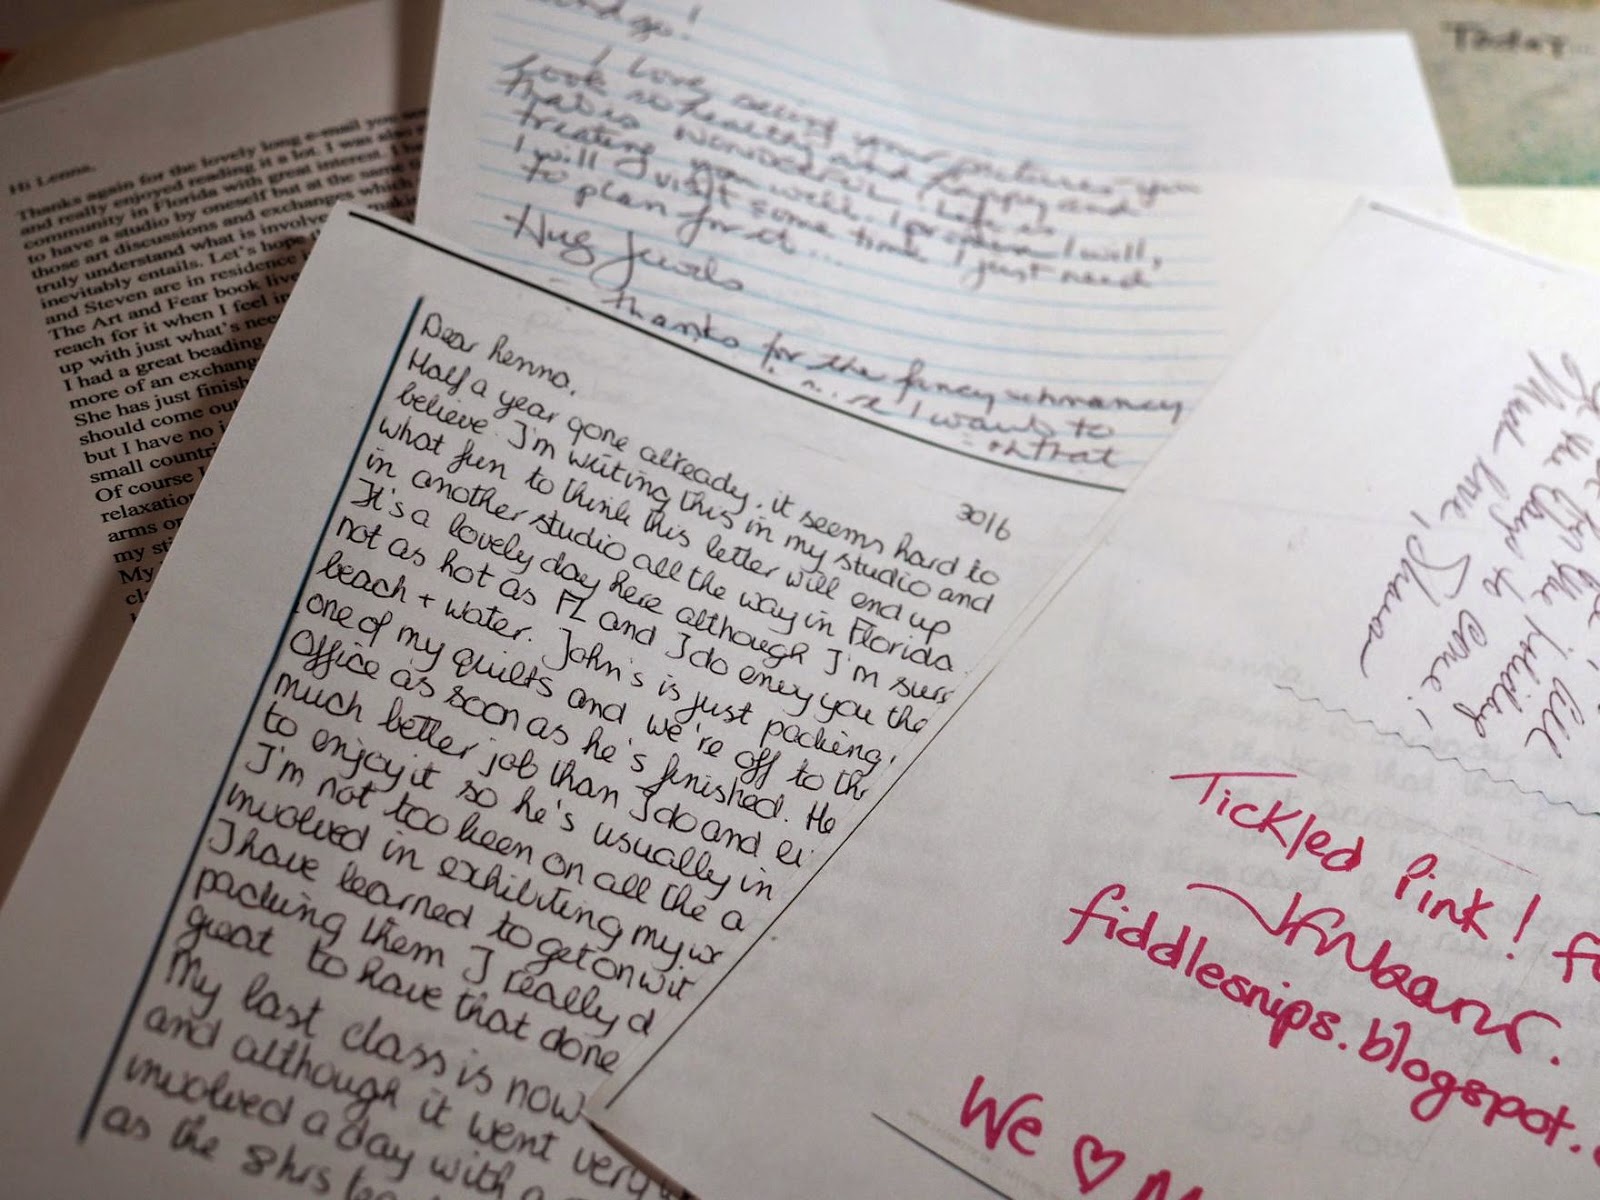 Today...
Hi Lenna,
Thanks again for the lovely long e-mail you
and really enjoyed reading it a lot. I was also
community in Florida with great interest. I
to have a studio by oneself but at the same
those art discussions and exchanges which
truly understand what is involved
inevitably entails. Let's hope
and Steven are in residence
The Art and Fear book live
reach for it when I feel
up with just what's nee
I had a great beading
more of an exchang
She has just finish
should come out
but I have no
small countri
Of course I
relaxation
arms or
my sti
My
cl
and go!
I love seeing your pictures - you
look so healthy and happy and
that is wonderful. Life is
treating you well. I promise I will,
I will visit some time I just need
to plan for it...
Hug Jewels
- thanks for the fancy schmancy
I want to
that
3016
Dear Lenna,
Half a year gone already, it seems hard to
believe. I'm writing this in my studio and
what fun to think this letter will end up
in another studio all the way in Florida.
It's a lovely day here although I'm sure
not as hot as FL and I do envy you the
beach + water. John's is just packing
one of my quilts and we're off to th
Office as soon as he's finished. He
much better job than I do and e
to enjoy it so he's usually in
I'm not too keen on all the a
involved in exhibiting my w
I have learned to get on wit
packing them I really d
great to have that done
My last class is now
and although it went very
involved a day with a
as the 8 hrs
the holiday
the days to come!
Much love, Shana
Tickled Pink! f
fiddlesnips.blogspot.
We ♥ M